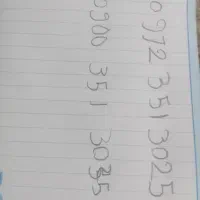 0972 351 3025
0900 351 3035